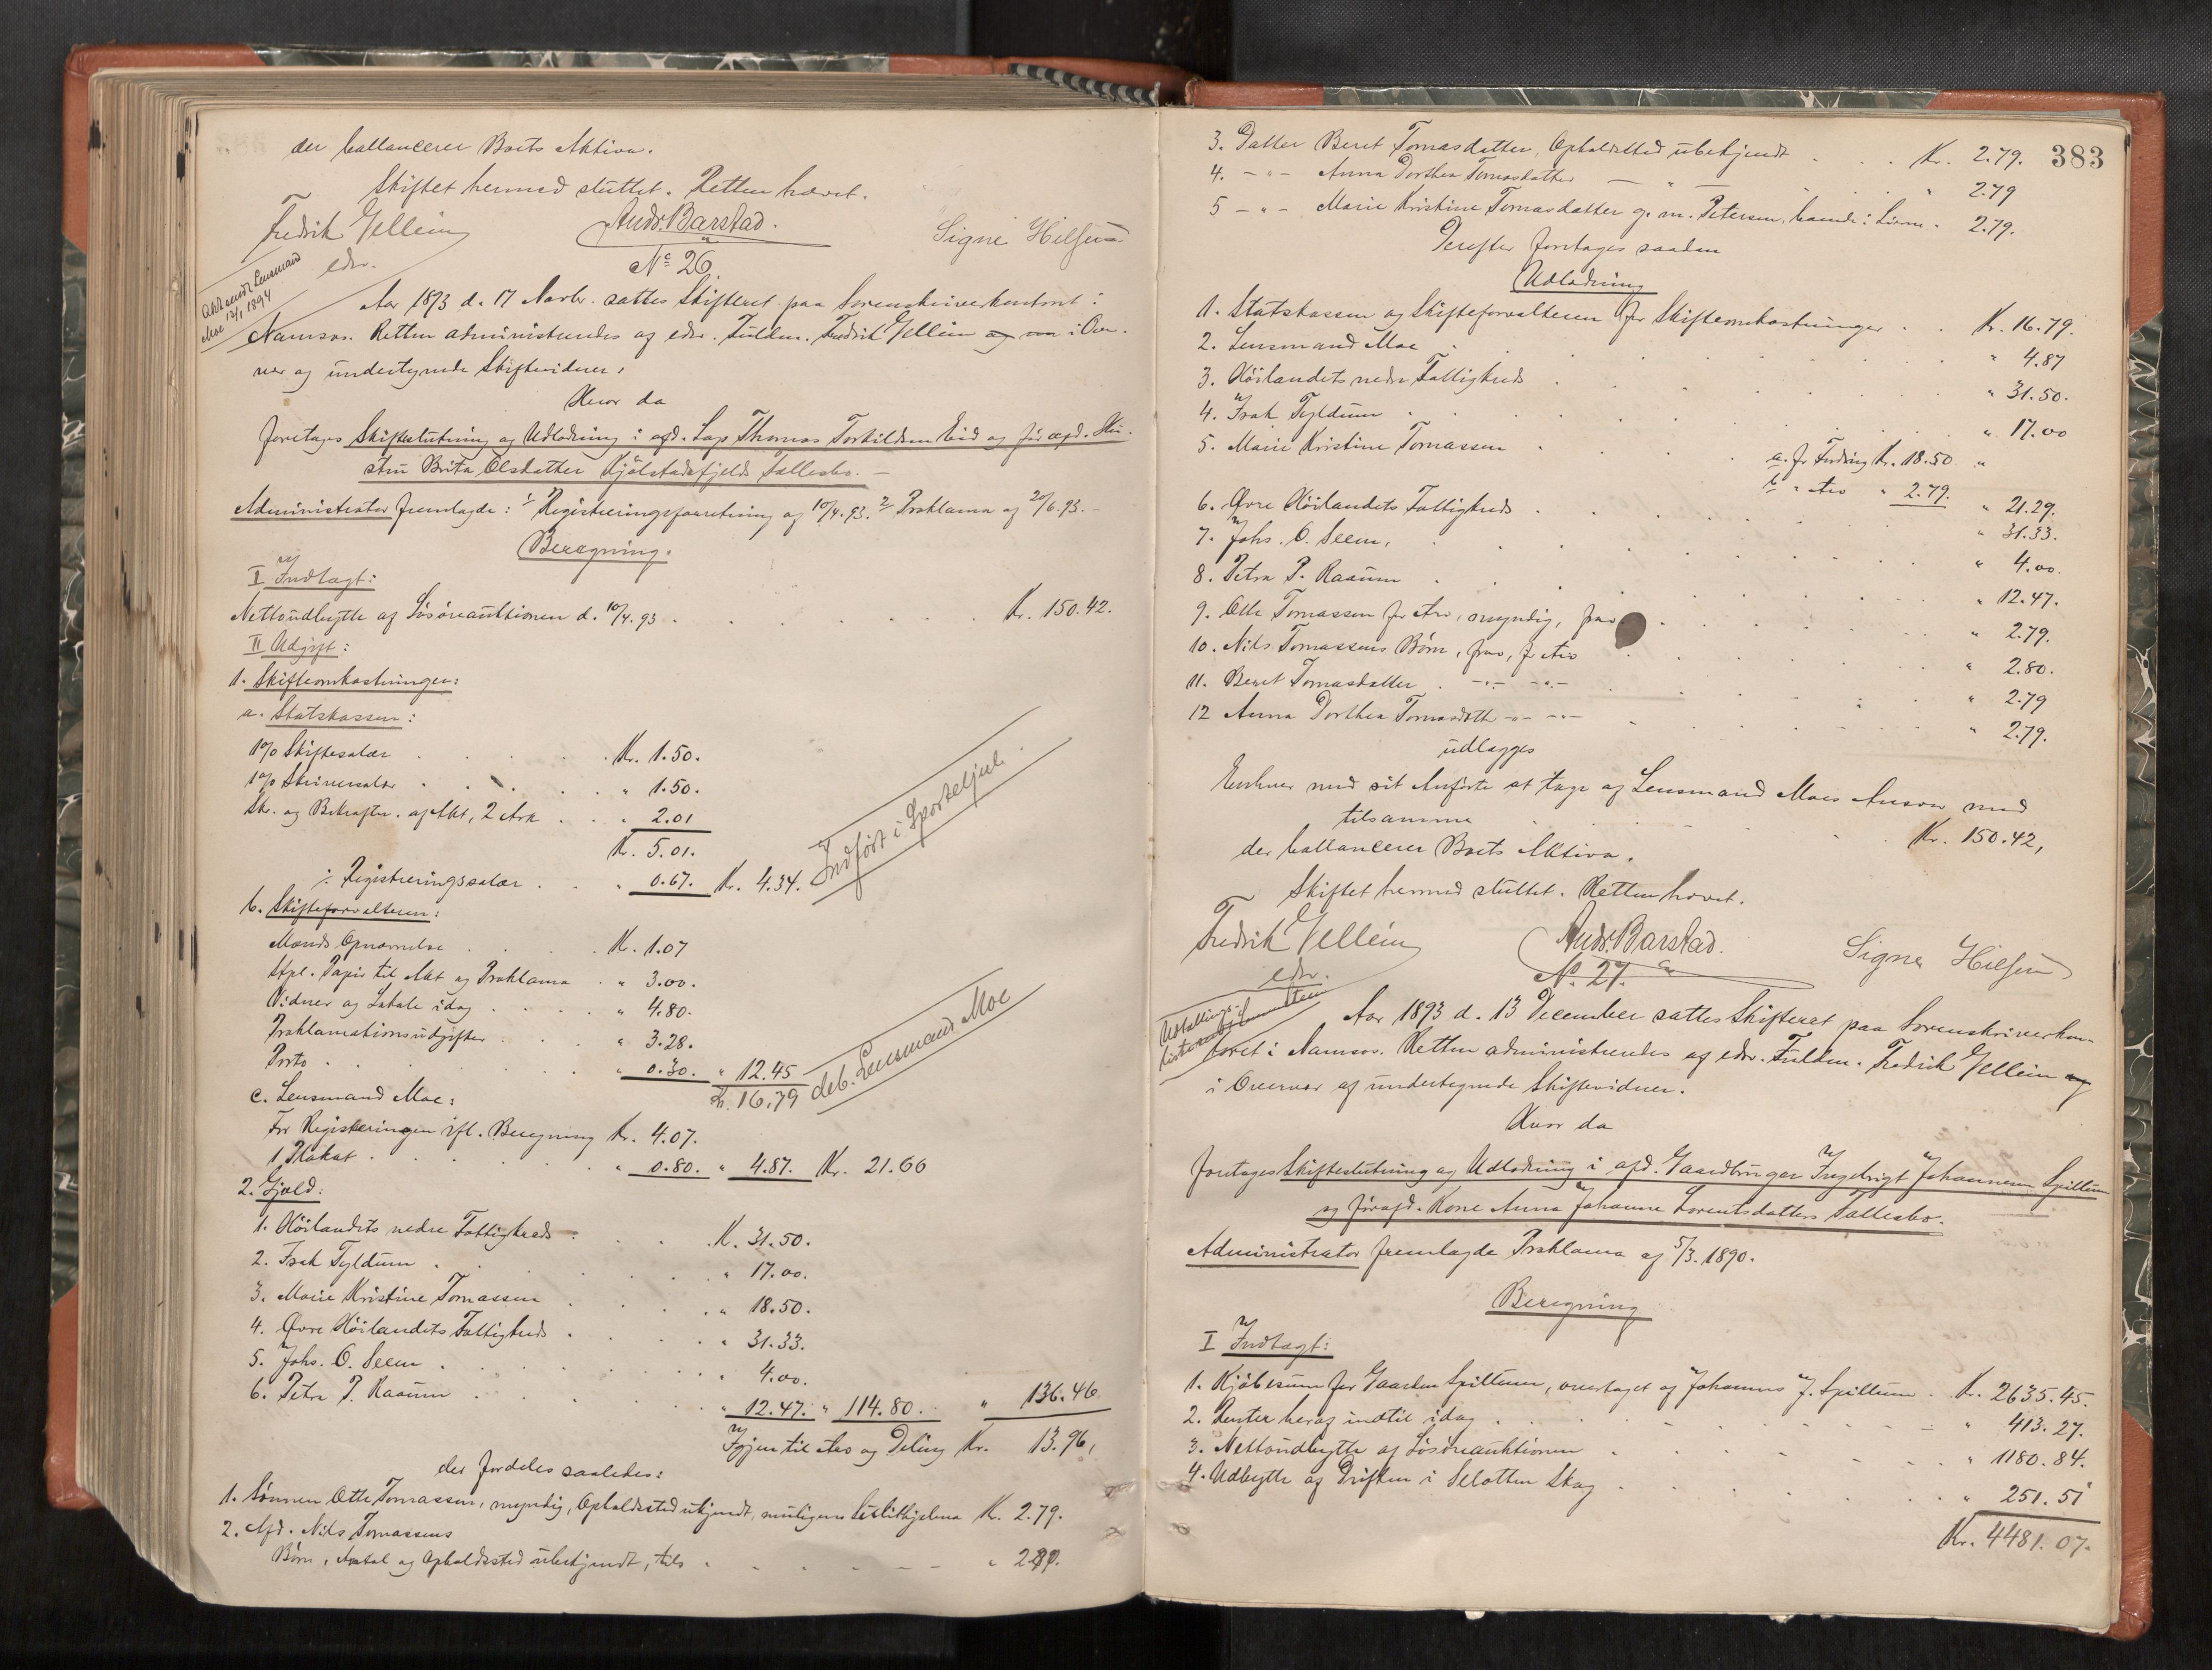 der ballancerer Boets Aktiva.
Skiftet hermed sluttet. Retten hævet.
Fredrik Gellein
edsv.
Andr. Barstad.
Signe Hilsen
No 26.
12/1 1894
Aar 1893 d. 17 Novbr. sattes Skifteret paa Sorenskriverkontoret i
Namsos. Retten administreredes af edsv. Fuldm. Fredrik Gellein og var i Over-
vær af undertegnede Skiftevidner.
Hvor da
foretages Skifteslutning og Udlodning i afd. Lap Thomas Torkildsen Eid og før afd. Hu-
stru Brita Olsdatter Kjölstadfjelds Fællesbo. -
Administrator fremlagde: 1/ Registreringsforretning af 10/4.93. 2/ Proklama af 20/6.93. -
Beregning.
I Indtægt:
Nettoudbytte af Løsøreauktionen d. 10/4.93 . . . . . Kr. 150.42.
II Udgift:
1. Skifteomkostninger:
a. Statskassen:
1% Skiftesalær . . . . Kr. 1.50.
1% Skriversalær . . . . " 1.50.
Skr. og Bekræftn. af Akt, 2 Ark . . " 2.01
Kr. 5.01.
÷ Registreringssalær . . " 0.67. Kr. 4.34.
Indført i Sporteljul.
b. Skifteforvalteren:
Mænds Opnævnelse . . . Kr. 1.07
Stpl. Papir til Akt og Proklama . " 3.00.
Vidner og Lokale idag . . . . " 4.80.
Proklamationsudgifter . . . . " 3.28.
Porto . . . . . . " 0.30. " 12.45
Kr. 16.79
deb. Lensmand Moe
c. Lensmand Moe:
For Registeringen ifl. Beregning Kr. 4.07.
1 Plakat . . . . . . " 0.80. " 4.87. Kr. 21.66
2. Gjæld:
1. Höilandets nedre Fattigkreds . . . . Kr. 31.50.
2. Isak Tyldum . . . . . " 17.00.
3. Marie Kristine Tomassen . . . . " 18.50.
4. Øvre Höilandets Fattigkreds . . . . " 31.33.
5. Johs. O. Seem . . . . . . " 4.00.
6. Petra P. Raaum . . . . . " 12.47. " 114.80. " 136.46
Igjen til Arv og Deling Kr. 13.96,
der fordeles saaledes:
1. Sønnen Otte Tomassen, myndig, Opholdssted ukjendt, muligens Kr. 2.79.
2. Afd. Nils Tomassens
Børn, Antal og Opholdssted ubekjendt, tils . . . . - - " 2.80.
383
3. Datter Beret Tomasdatter, Opholdssted ubekjendt . . . Kr. 2.79.
4. - " - Anna Dorthea Tomasdatter — " — " 2.79
5 - " - Marie Kristine Tomasdatter g. m. Petersen, boende i . 2.79.
Derefter foretages saadan
Udlodning
1. Statskassen og Skifteforvalteren for Skifteomkostninger . . Kr. 16.79.
2. Lensmand Moe . . . . . " 4.87
3. Höilandets nedre Fattigkreds . . . . " 31.50.
4. Isak Tyldum . . . . . " 17.00
5. Marie Kristine Tomassen . . . a. for Fordring Kr. 18.50 "
b " Arv " 2.79. " 21.29.
6. Øvre Höilandets Fattigkreds . . . . " 31.33.
7. Johs. O. Seem. . . . . " 4.00.
8. Petra P. Raaum . . . . . " 12.47.
9. Otte Tomassen for Arv, myndig, frav . . . . " 2.79.
10. Nils Tomassens Børn, frav, f Arv . . . . " 2.80.
11. Beret Tomasdatter . -"- -"- . . . " 2.79
12 Anna Dorthea Tomasdatt -"- -"- . . . " 2.79.
udlægges
Enhver med sit Anførte at tage af Lensmand Moes Ansvar med
tilsamme . . . . . Kr. 150.42,
der ballancerer Boets Aktiva.
Skiftet hermed sluttet. Retten hævet.
Fredrik Gellein
edsv.
Andr. Barstad.
Signe Hilsen
No. 27.
Aar 1893 d. 13 December sattes Skifteret paa Sorenskriverkon-
toret i Namsos. Retten administreredes af edsv. Fuldm. Fredrik Gellein og
i Overvær af undertegnede Skiftevidner.
Hvor da
foretages Skifteslutning og Udlodning i afd. Gaardbruger Ingebrigt Johannesen Spillum
og førafd. Kone Anna Johanne Lorentsdatters Fællesbo.
Administrator fremlagde Proklama af 5/3. 1890.
Beregning
I Indtægt:
1. Kjøbesum for Gaarden Spillum, overtaget af Johannes J. Spillum . Kr. 2635.45.
2. Renter heraf indtil idag . . . . - - - " 413.27.
3. Nettoudbytte af Løsøreauktionen . . . . - - " 1180.84.
4. Udbytte af Driften i Selotten Skog . . . . . " 251.51
Kr. 4481.07.